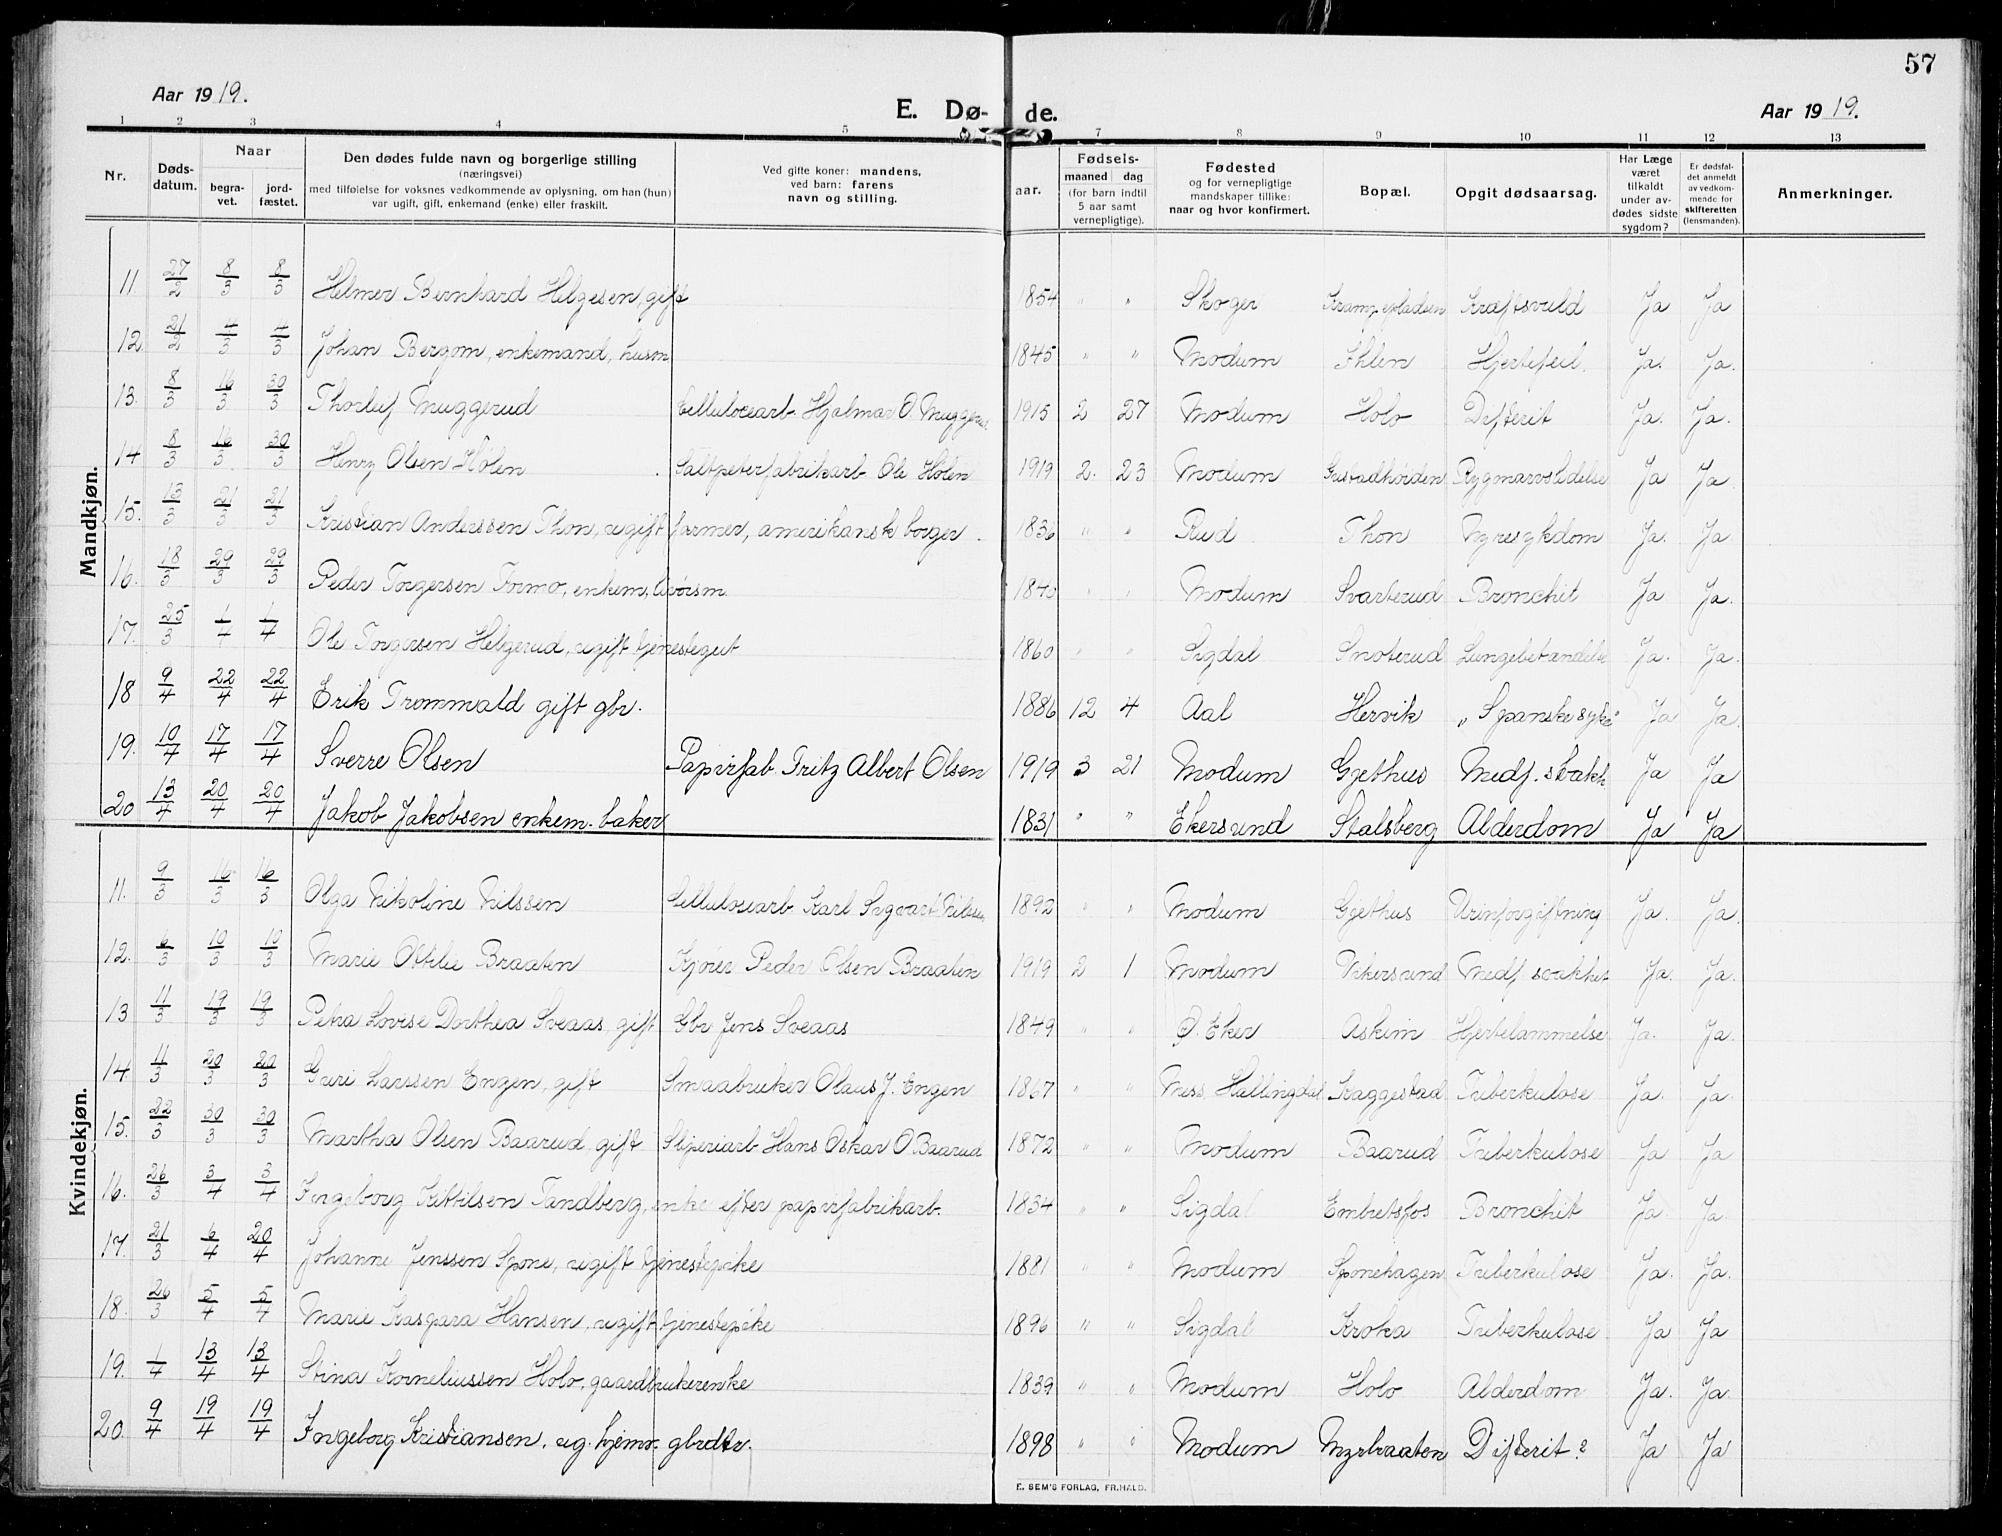 57
Aar 1919.
E. Dø- de.
Aar 1919.
1 2 3 4 5 7 8 9 10 11 12 13
Nr. Døds-datum. Naar begra-vet. jord-fæstet. Den dødes fulde navn og borgerlige stilling (næringsvei) med tilføielse for voksnes vedkommende av oplysning, om han (hun) var ugift, gift, enkemand (enke) eller fraskilt. Ved gifte koner: mandens, ved barn: farens navn og stilling. aar. Fødsels- maaned dag (for barn indtil 5 aar samt vernepligtige). Fødested og for vernepligtige mandskaper tillike: naar og hvor konfirmert. Bopæl. Opgit dødsaarsag. Har Læge været tilkaldt under av-dødes sidste sygdom? Er dødsfal-det anmeldt av vedkom-mende for skifteretten (lensmanden). Anmerkninger.
Mandkjøn.
11 27/2 8/3 8/3 Helmer Bernhard Helgesen, gift 1854 " " Skoger Krampepladsen Kræftsvuld Ja Ja
12 21/2 4/3 4/3 Johan Bergom, enkemand, husm 1845 " " Modum Ihlen Hjertefeil. Ja. Ja.
13. 8/3 16/3 30/3 Thorluf Muggerud Cellulosearb. Hjalmar O. Muggerud 1915 2 27 Modum Holo Difterit Ja. Ja.
14 8/3 16/3 30/3 Henry Olsen Holen Saltpeterfabrikarb. Ole Holen 1919 2. 23 Modum Rygmarvslidelse Ja Ja
15. 13/3 21/3 21/3 Kristian Anderssen Thon, ugift farmer, amerikansk borger. 1836 " " Rud Thon Nyresykdom Ja. Ja
16. 18/3 29/3 29/3 Peder Torgersen Formo, enkem, 1840 " " Modum Svarterud Bronchit Ja Ja.
17. 25/3 1/4 1/4 Ole Torgersen Helgerud, ugift tjenestegut 1860 " " Sigdal Snoterud Lungebetændelse Ja. Ja.
18 9/4 22/4 22/4 Erik Trommald gift gbr. 1886 12 4 Aal Hervik "Spanske syke" Ja Ja.
19. 10/4 17/4 17/4 Sverre Olsen Papirfab. Fritz Albert Olsen 1919 3 21 Modum Gjethus Medf. svakh Ja Ja
20 13/4 20/4 20/4 Jakob Jakobsen enkem. baker 1831 " " Ekersund Stalsberg Alderdom Ja Ja
Kvindekjøn.
11. 9/3 16/3 16/3 Olga Nikoline Nilssen Cellulosearb. Karl Sigvart Nilssen 1892 " " Modum Gjethus Urinforgiftning Ja. Ja.
12. 6/3 19/3 19/3 Marie Ottilie Braaten Kjører Peder Olsen Braaten 1919 2 1 Modum Vikersund Medf svakhet Ja. Ja.
13 11/3 19/3 19/3 Petra Lovise Dorthea Sveaas, gift Gbr Jens Sveaas 1849 " " Ø. Eker Askim Hjertelammelse Ja. Ja.
14. 11/3 20/3 20/3 Guri Larssen Engen, gift Smaabruker Olaus J. Engen 1867 " " Ness Hallingdal Kaggestad Tuberkulose Ja. Ja.
15. 22/3 30/3 30/3 Martha Olsen Baarud, gift Sliperiarb Hans Oskar O Baarud 1872 " " Modum Baarud Tuberkulose Ja Ja
16. 26/3 3/4 3/4 Ingeborg Kittilsen Tandberg, enke efter papirfabrikarb. 1834 " " Sigdal Embretsfos Bronchit Ja. Ja.
17. 21/3 6/4 20/4 Johanne Jenssen Spone, ugift tjenestepike 1881 " " Modum Sponehagen Tuberkulose Ja. Ja.
18. 26/3 5/4 5/4 Marie Kaspara Hansen, ugift tjenestepike 1896 " " Sigdal Kroka Tuberkulose Ja Ja
19. 1/4 13/4 13/4 Stina Korneliussen Holo, gaardbrukerenke 1839 " " Modum Holo Alderdom Ja. Ja.
20. 9/4 19/4 19/4 Ingeborg Kristiansen. ug. hjemv. gbrdtr. 1898 " " Modum Myrbraaten Difterit? Ja Ja
E. SEM'S FORLAG, FR.HALD.